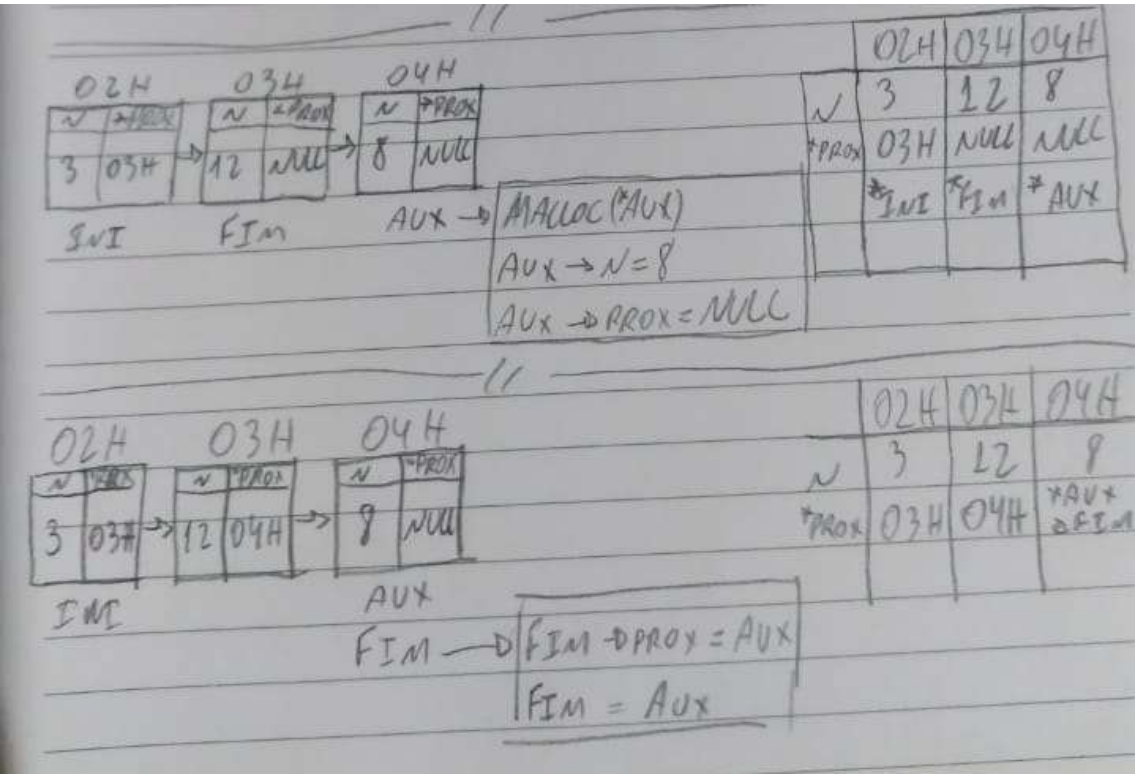 //
02H 03H 04H
N *PROX N *PROX N *PROX
3 03H 12 NULL 8 NULL
INI FIM AUX
MALLOC(*AUX)
AUX → N = 8
AUX → PROX = NULL
02H 03H 04H
N 3 12 8
*PROX 03H NULL NULL
*INI *FIM *AUX
//
02H 03H 04H
N *PROX N *PROX N *PROX
3 03H 12 04H 8 NULL
INI AUX
FIM
FIM → PROX = AUX
FIM = AUX
02H 03H 04H
N 3 12 8
*PROX 03H 04H *AUX
FIM